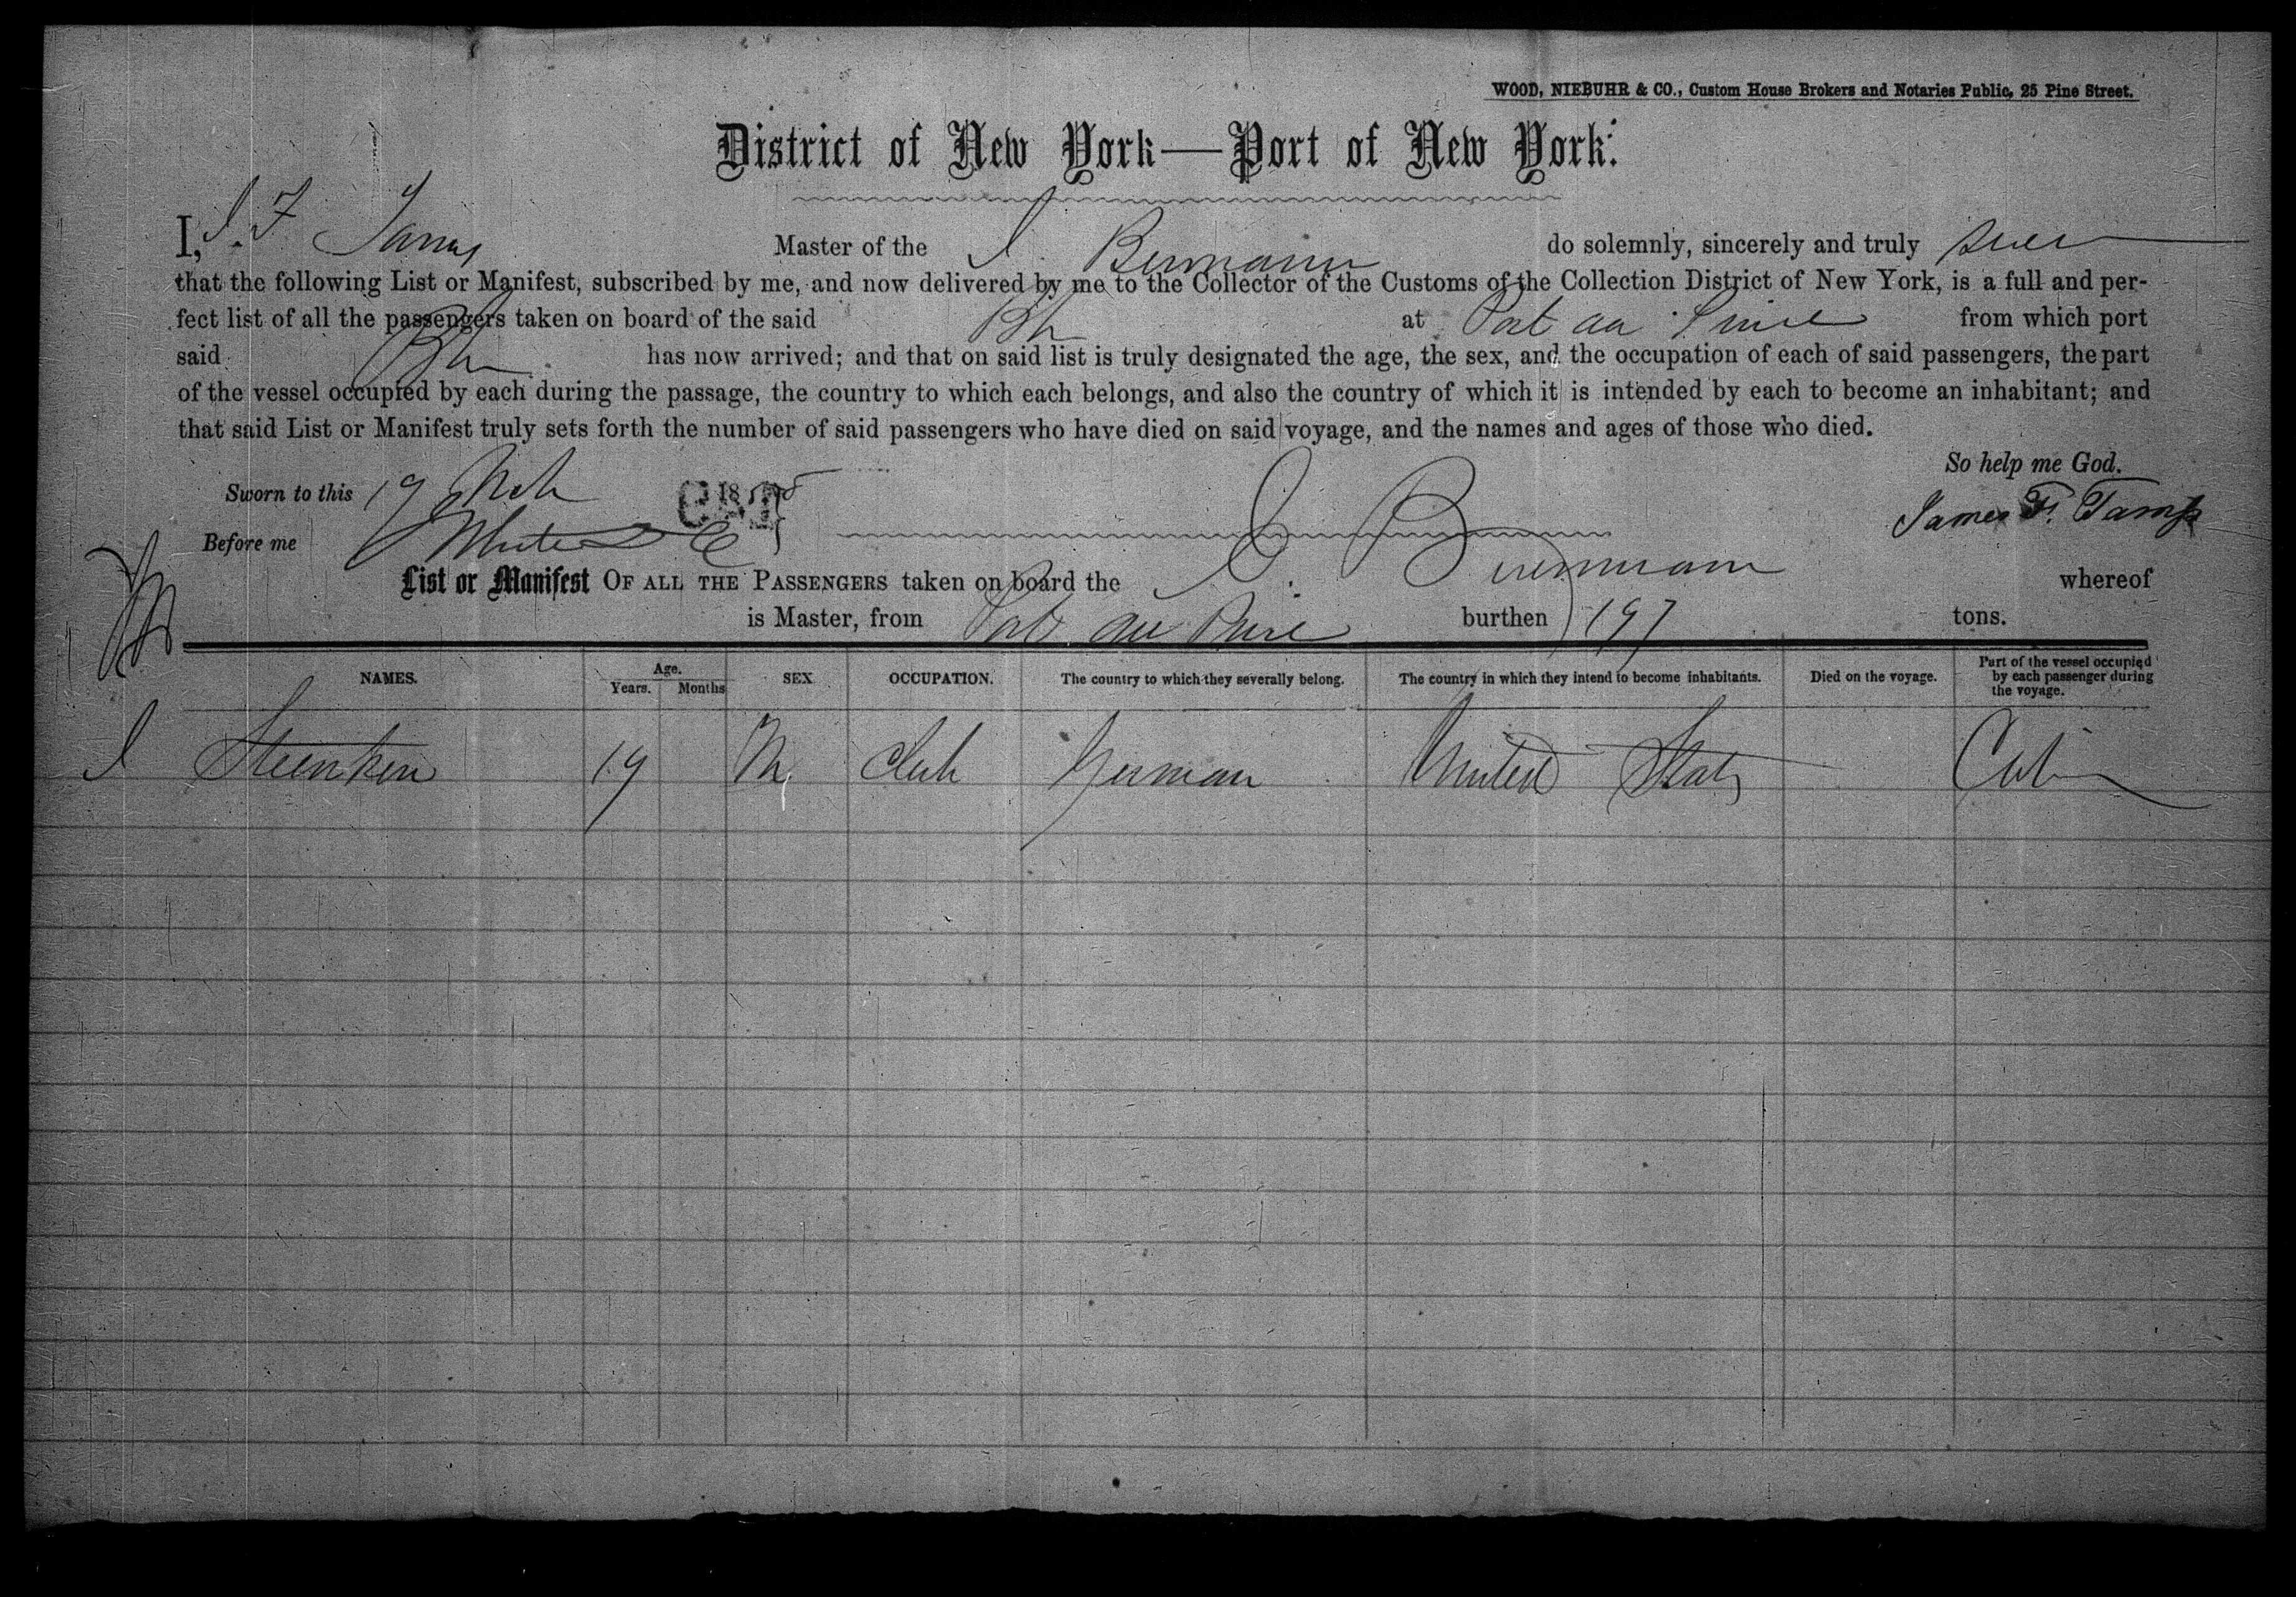 WOOD, NIEBUHR & CO., Custom House Brokers and Notaries Public, 25 Pine Street.
District of New York—Port of New York.
I, J. F Master of the J. Bermann do solemnly, sincerely and truly swear
that the following List or Manifest, subscribed by me, and now delivered by me to the Collector of the Customs of the Collection District of New York, is a full and per-
fect list of all the passengers taken on board of the said at Port au Prince from which port
said has now arrived; and that on said list is truly designated the age, the sex, and the occupation of each of said passengers, the part
of the vessel occupied by each during the passage, the country to which each belongs, and also the country of which it is intended by each to become an inhabitant; and
that said List or Manifest truly sets forth the number of said passengers who have died on said voyage, and the names and ages of those who died.
So help me God.
Sworn to this 19 Mch 18
James F.
Before me
List or Manifest OF ALL THE PASSENGERS taken on board the J. Biermann whereof
is Master, from Port au Prince burthen 197 tons.
NAMES. Age. Years. Months SEX OCCUPATION. The country to which they severally belong. The country in which they intend to become inhabitants. Died on the voyage. Part of the vessel occupied by each passenger during the voyage.
J Steenken 19 M. Clerk German United States Cabin